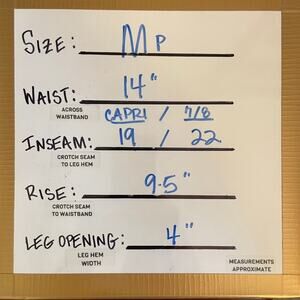 SIZE: MP
WAIST: 14"
ACROSS
WAISTBAND
CAPRI / 7/8
INSEAM: 19 / 22
CROTCH SEAM
TO LEG HEM
RISE: 9.5"
CROTCH SEAM
TO WAISTBAND
LEG OPENING: 4"
LEG HEM
WIDTH
MEASUREMENTS
APPROXIMATE